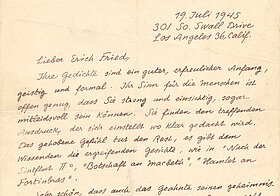 19. Juli 1945
301 So. Swall Drive
Los Angeles 36, Calif.
Lieber Erich Fried,
Ihre Gedichte sind ein guter, erfreulicher Anfang,
geistig und formal. Ihr Sinn für die Menschen ist
offen genug, dass Sie streng und einsichtig, sogar
mitleidsvoll sein können. Sie finden dem treffenden
Ausdruck, der sich einstellt wo klar gedacht wird.
Das gehobene Gefühl tut den Rest, es gibt dem
Wissenden die ergreifenden Gesichte, wie in "Nach der
Sintflut II", "Botschaft an Macbeth", "Hamlet an
Fortinbras".
schön, dass auch das Geahnte seinen geheimen